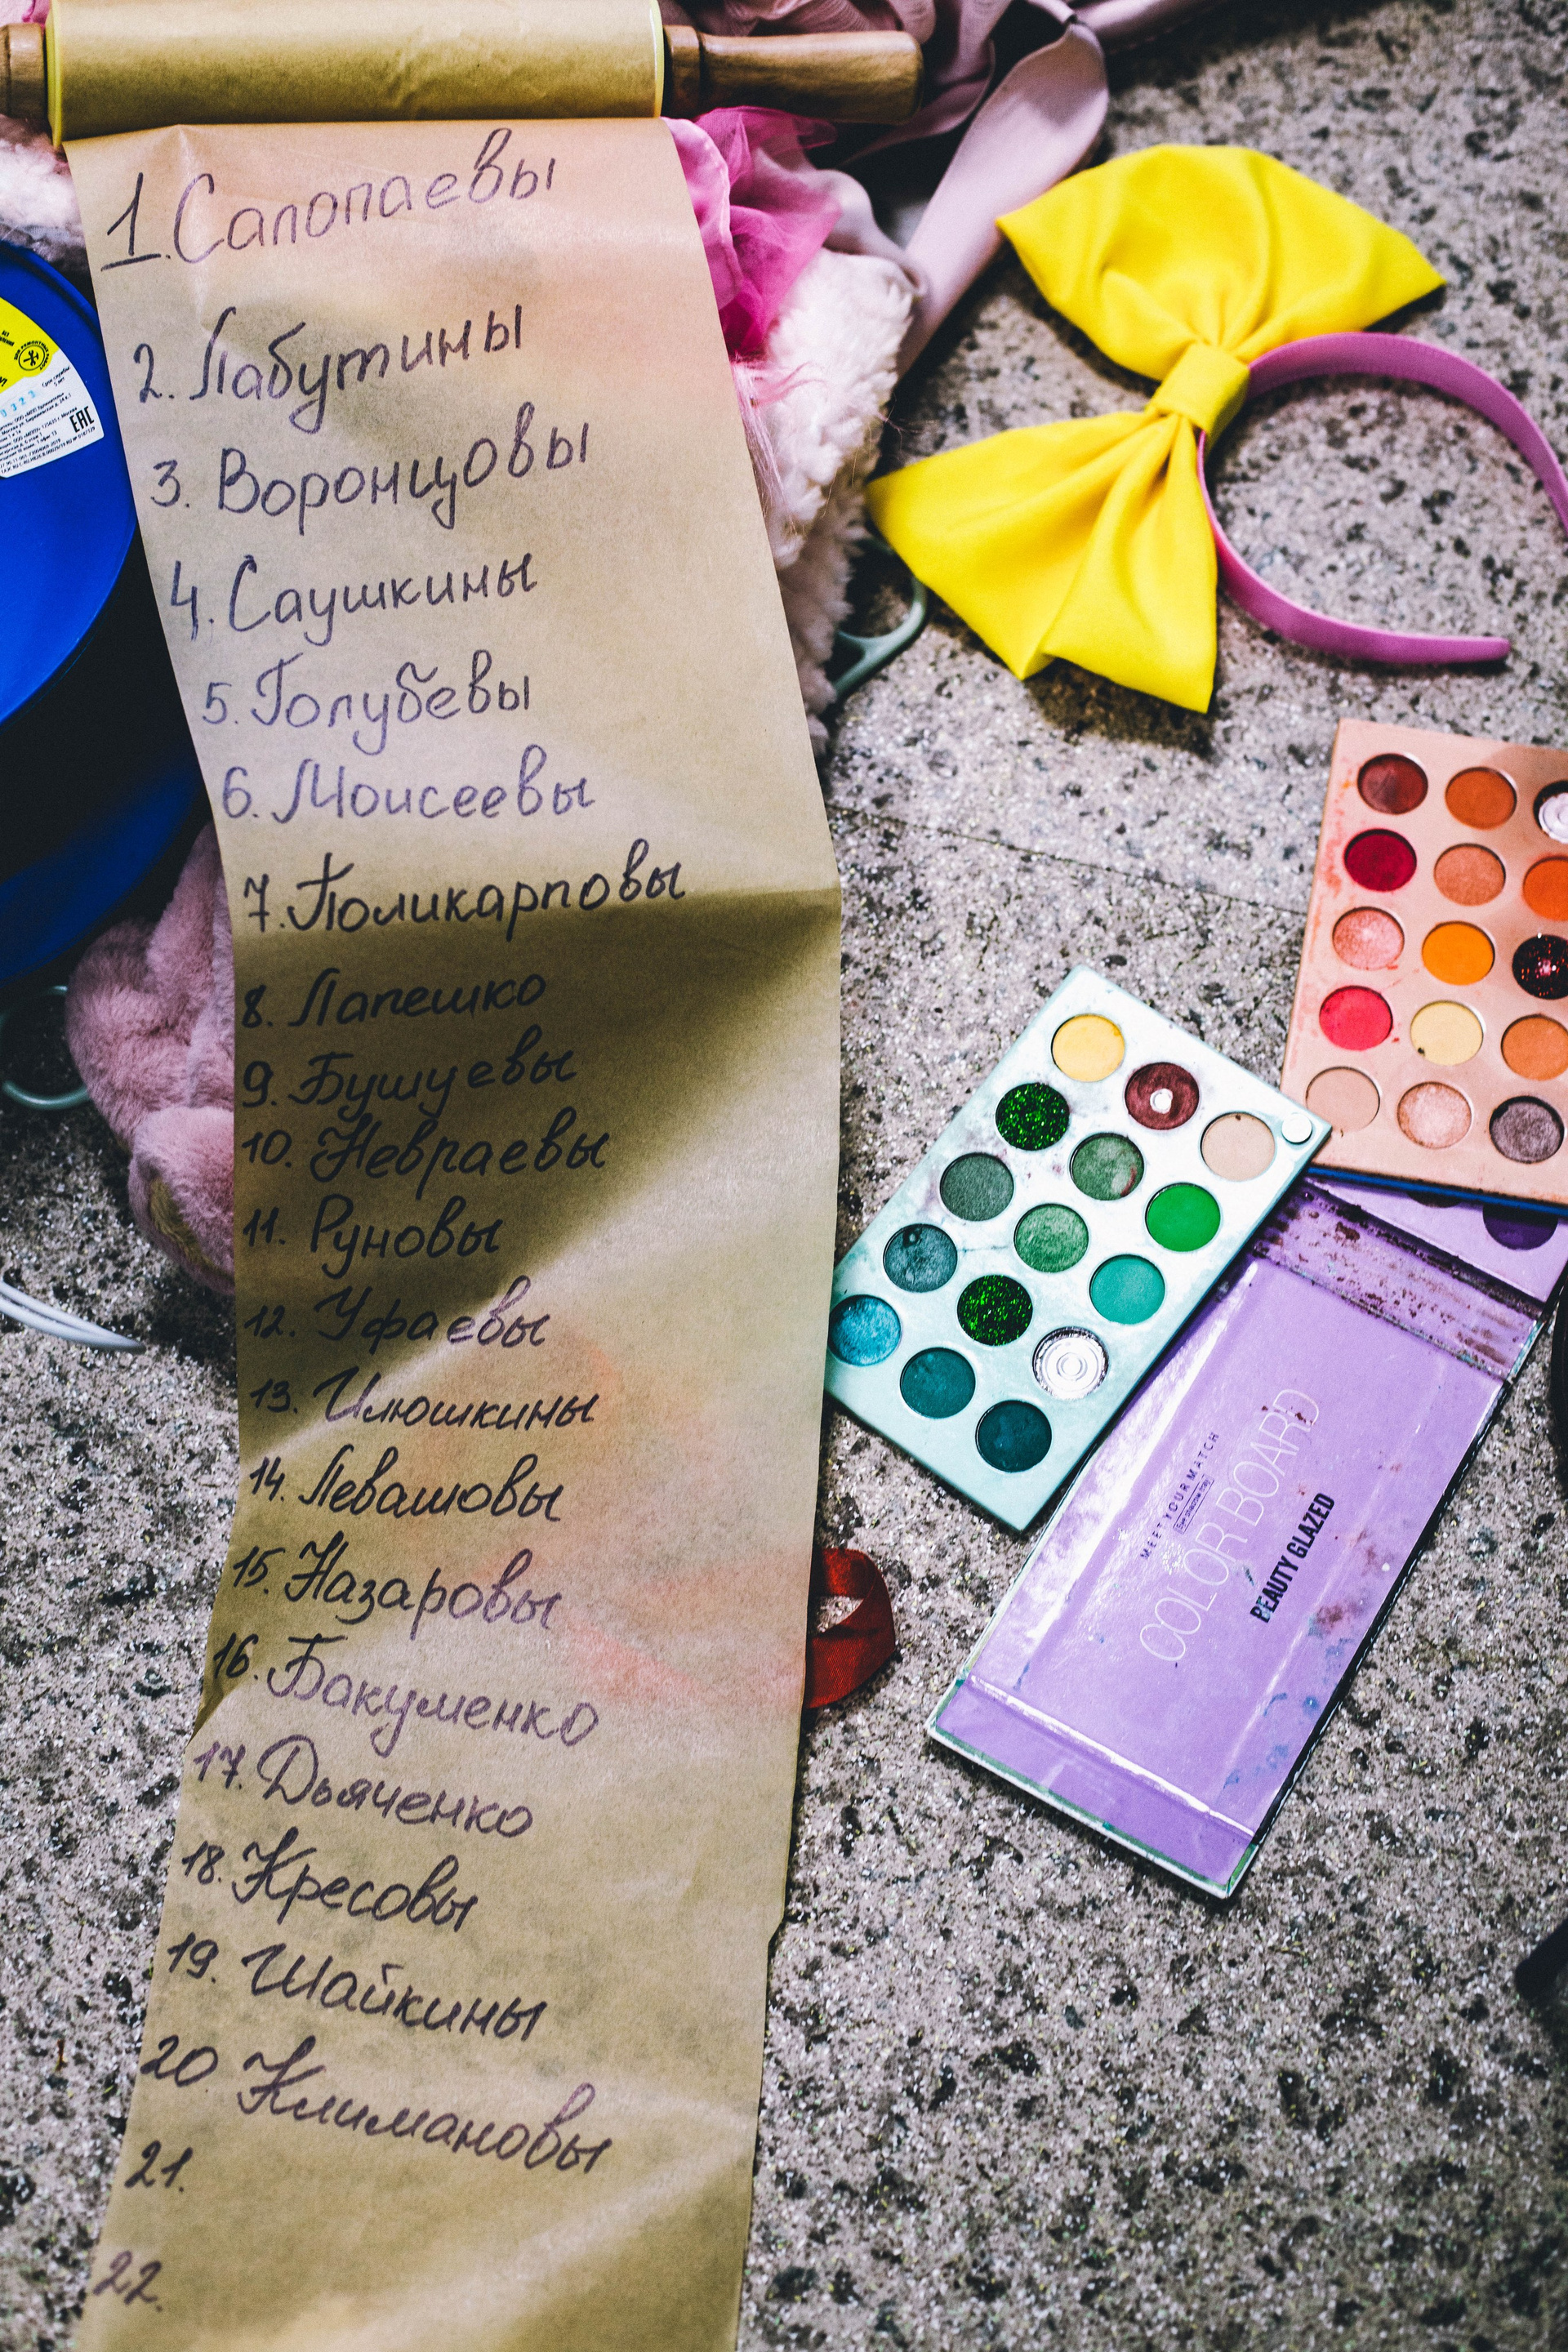 1. Салопаевы
2. Лабутины
3. Воронцовы
4. Саушкины
5. Голубевы
6. Моисеевы
7. Поликарповы
8. Лапешко
9. Бушуевы
10. Невраевы
11. Руновы
12. Уфаевы
13. Илюшкины
14. Левашовы
15. Назаровы
16. Бакуменко
17. Дьяченко
18. Кресовы
19. Шайкины
20. Климановы
21.
22.
Срок службы
5 лет
EAC
MEET YOUR MATCH
COLOR BOARD
BEAUTY GLAZED